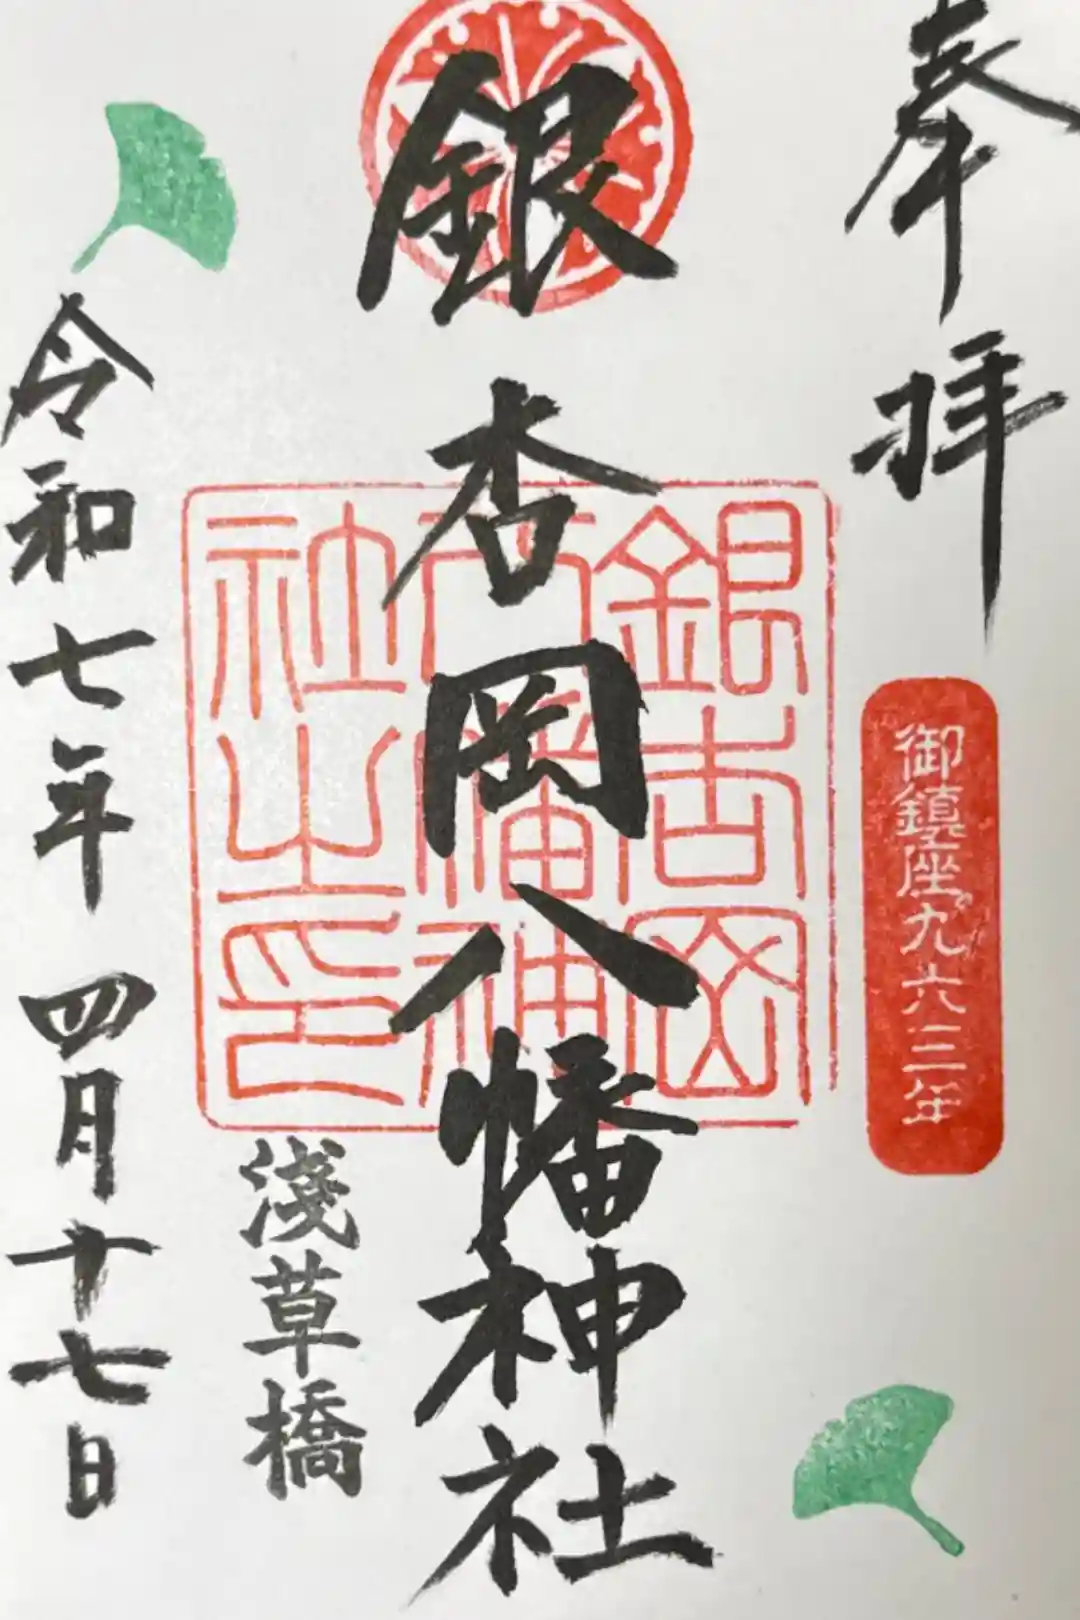 奉拝
御鎮座九六三年
銀杏岡八幡神社
銀杏岡
八幡神
社之印
淺草橋
令和七年 四月十七日